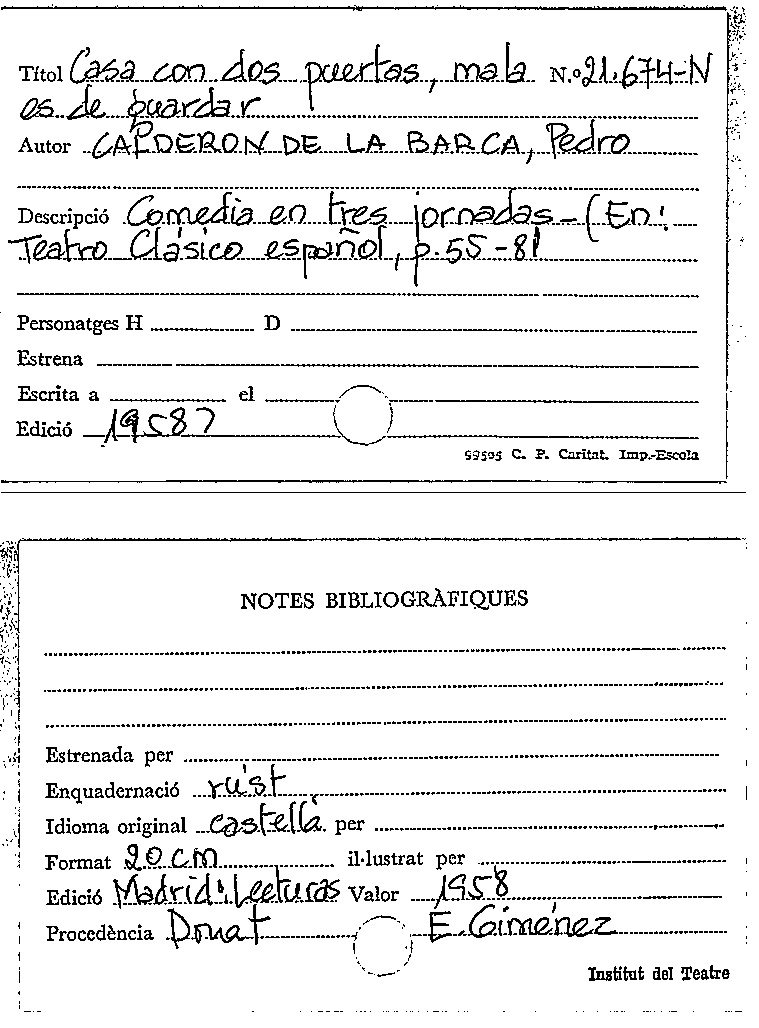 Títol Casa con dos puertas, mala N.º 21.674-N
es de guardar
Autor CALDERON DE LA BARCA, Pedro
Descripció Comedia en tres jornadas - (En:
Teatro Clásico español, p. 55-81
Personatges H D
Estrena
Escrita a el
Edició 1958?
99595 C. P. Caritat. Imp.-Escola
NOTES BIBLIOGRÀFIQUES
Estrenada per
Enquadernació rúst
Idioma original castellà per
Format 20 cm il·lustrat per
Edició Madrid: Lecturas Valor 1958
Procedència Donat E. Giménez
Institut del Teatre